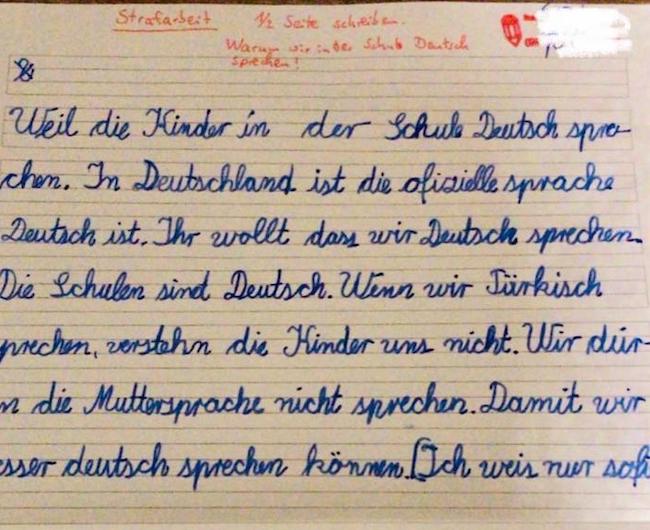 Strafarbeit 1/2 Seite schreiben.
Warum wir in der Schule Deutsch
sprechen!
Weil die Kinder in der Schule Deutsch spre-
chen. In Deutschland ist die ofizielle sprache
Deutsch ist. Ihr wollt dass wir Deutsch sprechen.
Die Schulen sind Deutsch. Wenn wir Türkisch
prechen, verstehn die Kinder uns nicht. Wir dür-
n die Muttersprache nicht sprechen. Damit wir
esser deutsch sprechen können. [Ich weis nur so